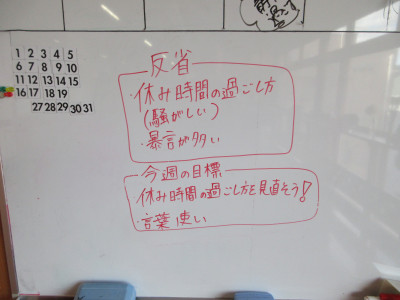 1 2 3 4 5
6 7 8 9 10
11 12 13 14 15
16 17 18 19
27 28 29 30 31
反省
・休み時間の過ごし方
(騒がしい)
・暴言が多い
今週の目標
休み時間の過ごし方を見直そう!
・言葉使い